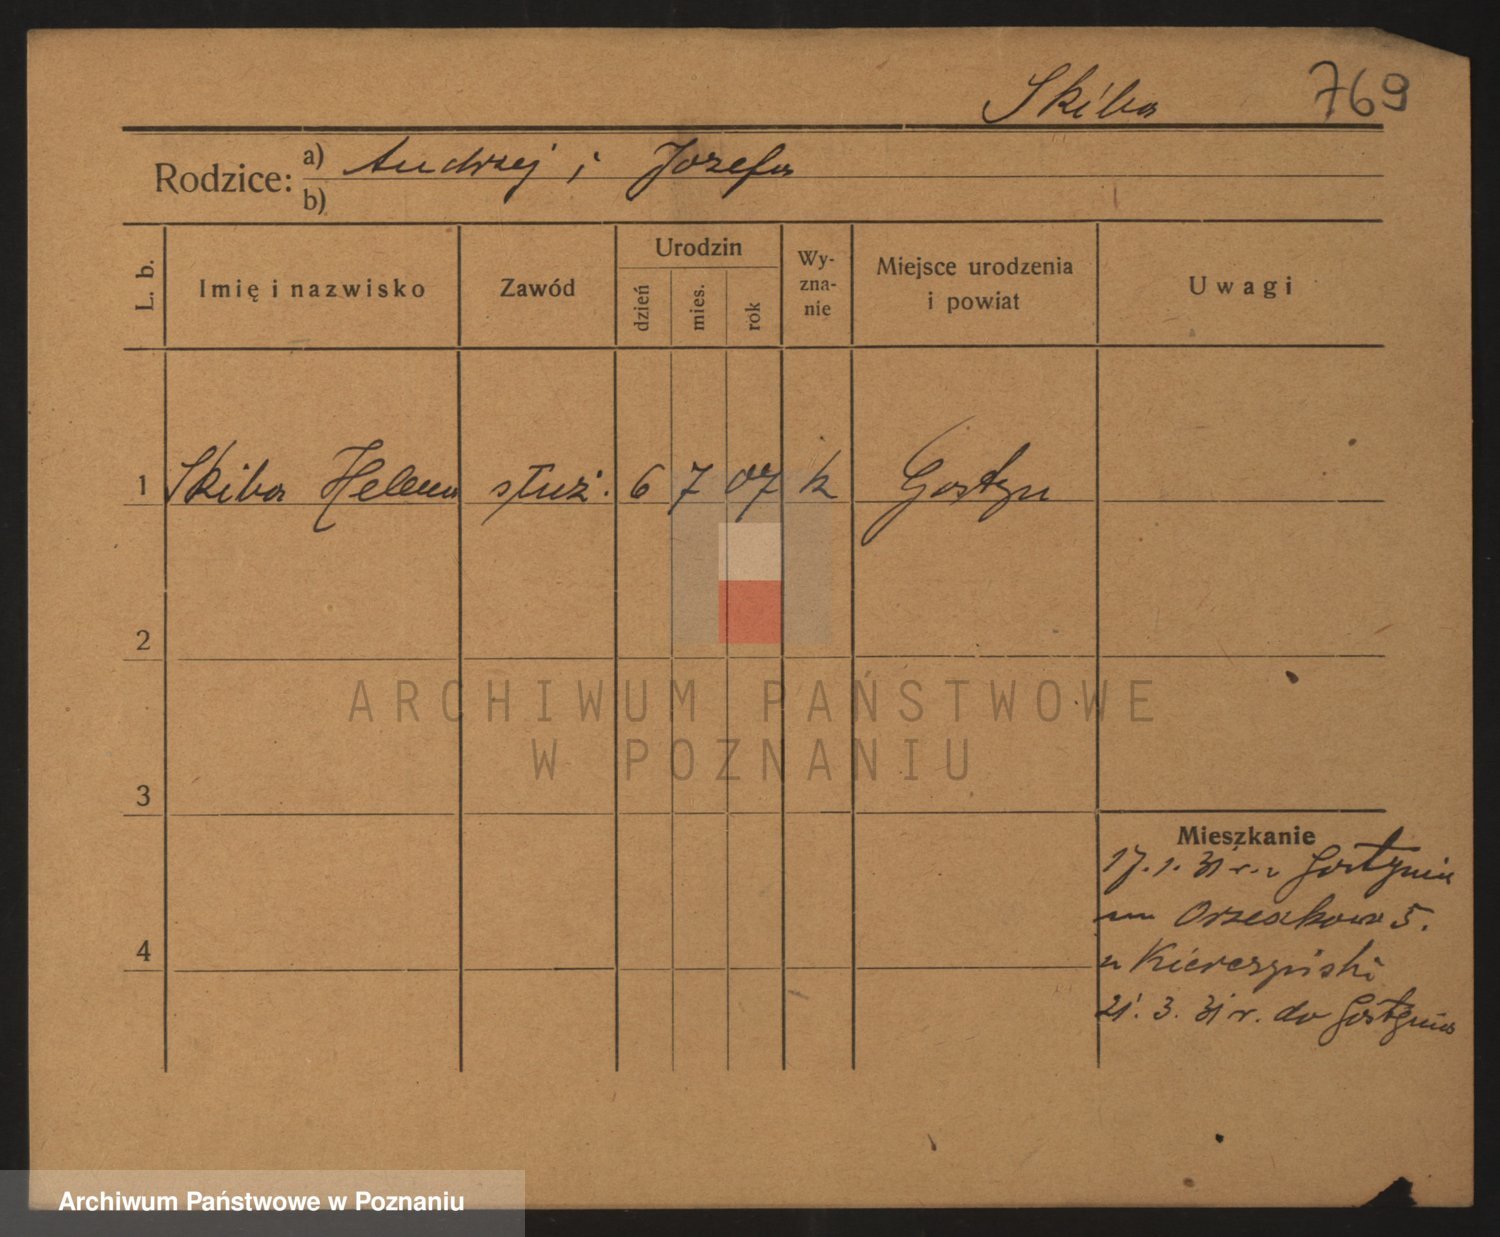 Skiba 769
Rodzice: a) Andrzej i Jozefa
b)
L. b. Imię i nazwisko Zawód Urodzin dzień mies. rok Wyznanie Miejsce urodzenia i powiat Uwagi
1 Skiba Helena służ. 6 7 07 k Gostyn
2
3
4
Mieszkanie
17. 1. 31 r. z Gostynia
Orzeszkowa 5.
u Kierczyński
21. 3. 31 r. do Gostynia
ARCHIWUM PAŃSTWOWE
W POZNANIU
Archiwum Państwowe w Poznaniu